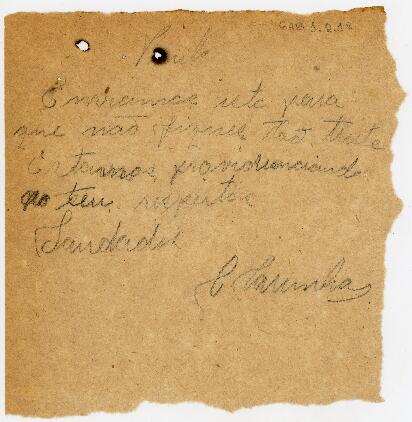 GAB 1.2.18
Paulo
Enviamos isto para
que não fiques tão triste
Estamos providenciando
no teu respeito
Saudades